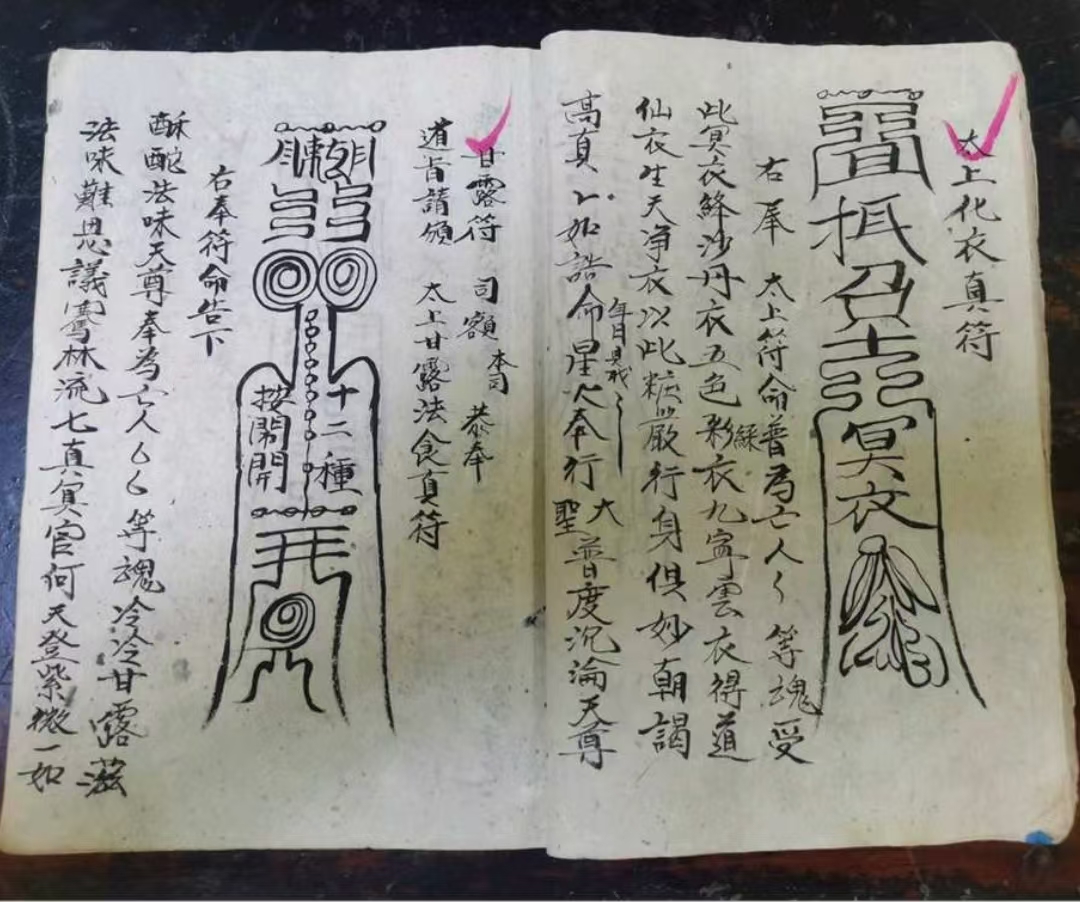 太上化衣真符
抵召
冥衣
右奉　太上符命普為亡人〻　等魂受
此冥衣絳沙丹衣五色彩衣九寧雲衣得道
綵
仙衣生天净衣以此粧嚴行身俱妙朝謁
高真〻如誥命
年月日
星火奉行
大聖普度沉淪天尊
甘露符　司額　本司　恭奉
道旨請頒　太上甘露法食真符
十二種
按開開
右奉符命告下
酥酡法味天尊奉為亡人〻〻等魂冷冷甘露滋
法味難思議騫林流七真冥官何天登紫微一如